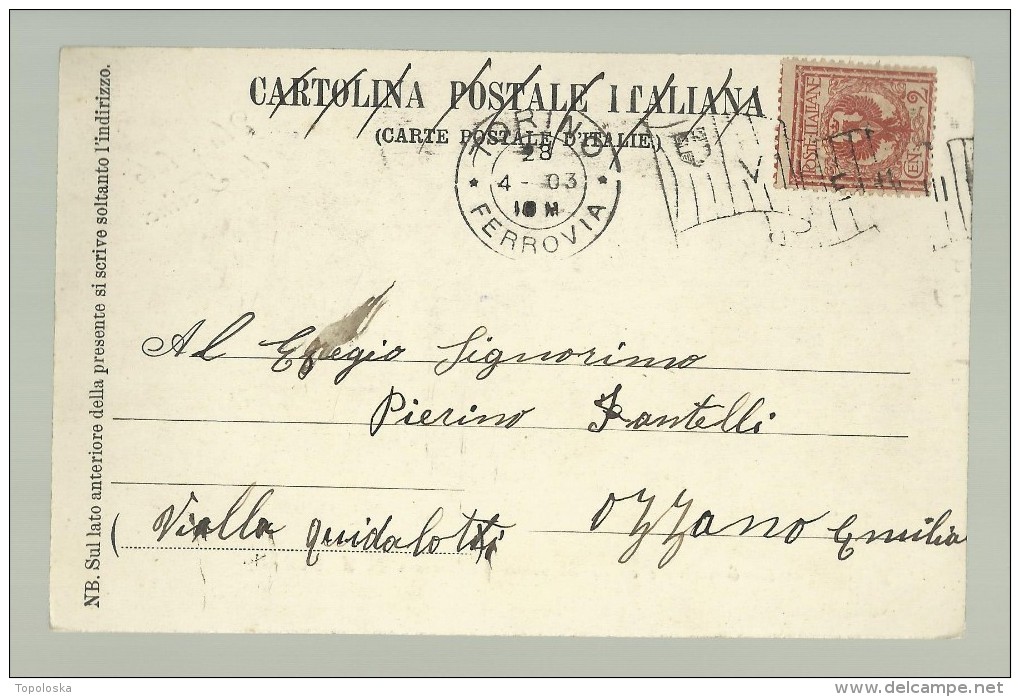 CARTOLINA POSTALE ITALIANA
(CARTE POSTALE D'ITALIE)
TORINO
28
4 - 03
FERROVIA
POSTE ITALIANE
CEN. 2
Al Egregio Signorino
Pierino Fantelli
Ozzano Emilia
(Vialla Guidalotti
NB. Sul lato anteriore della presente si scrive soltanto l'indirizzo.
Topoloska
www.delcampe.net